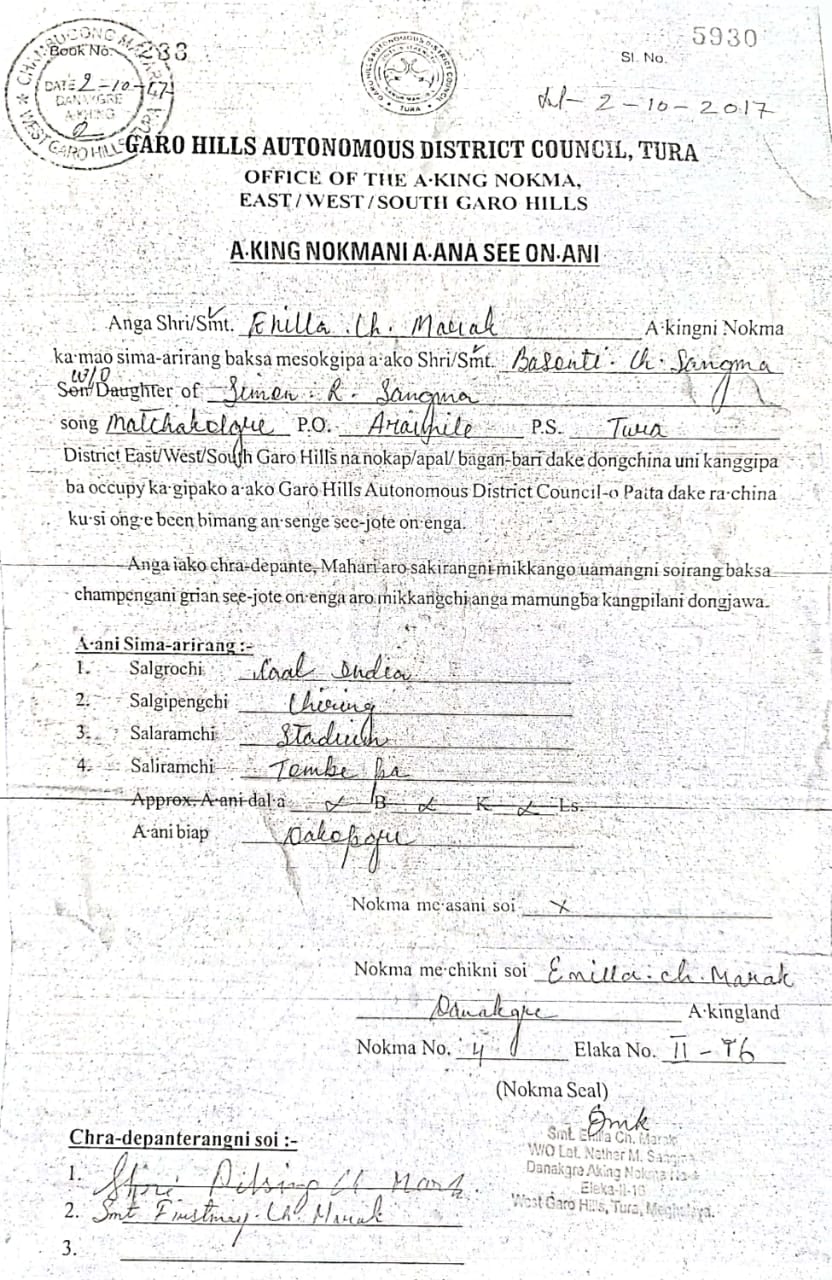 Book No. 233
5930
Sl. No.
DATE 2-10-17
DANAKGRE
A·KING
WEST GARO HILLS TURA
GARO HILLS AUTONOMOUS DISTRICT COUNCIL
TURA
dt- 2-10-2017
GARO HILLS AUTONOMOUS DISTRICT COUNCIL, TURA
OFFICE OF THE A·KING NOKMA,
EAST/WEST/SOUTH GARO HILLS
A·KING NOKMANI A·ANA SEE ON·ANI
Anga Shri/Smt. Enilla Ch. Marak A·kingni Nokma
ka·mao sima-arirang baksa mesokgipa a·ako Shri/Smt. Basenti Ch. Sangma
W/O
Son/Daughter of Simon R. Sangma
song Matchakolgre P.O. Araimile P.S. Tura
District East/West/South Garo Hills na nokap/apal/ bagan-bari dake dongchina uni kanggipa
ba occupy ka·gipako a·ako Garo Hills Autonomous District Council-o Patta dake ra·china
ku·si ong·e been bimang an·senge see-jote on·enga.
Anga iako chra-depante, Mahari aro sakirangni mikkango uamangni soirang baksa
champengani grian see-jote on·enga aro mikkangchi anga mamungba kangpilani dongjawa.
A·ani Sima-arirang :-
1. Salgrochi Coal India
2. Salgipengchi Chiring
3. Salaramchi Stadium
4. Saliramchi
Approx. A·ani dal·a B K Ls.
A·ani biap Dakopgre
Nokma me·asani soi x
Nokma me·chikni soi Enilla Ch. Marak
Danakgre A·kingland
Nokma No. 4 Elaka No. II - T6
(Nokma Seal)
Smt. Enilla Ch. Marak
W/O Lat. Nather M. Sangma
Danakgre Aking Nokma No-4
Elaka-II-16
West Garo Hills, Tura, Meghalaya.
Chra-depanterangni soi :-
1. Shri. Ch Marak
2. Smt Firstmay Ch. Marak
3.